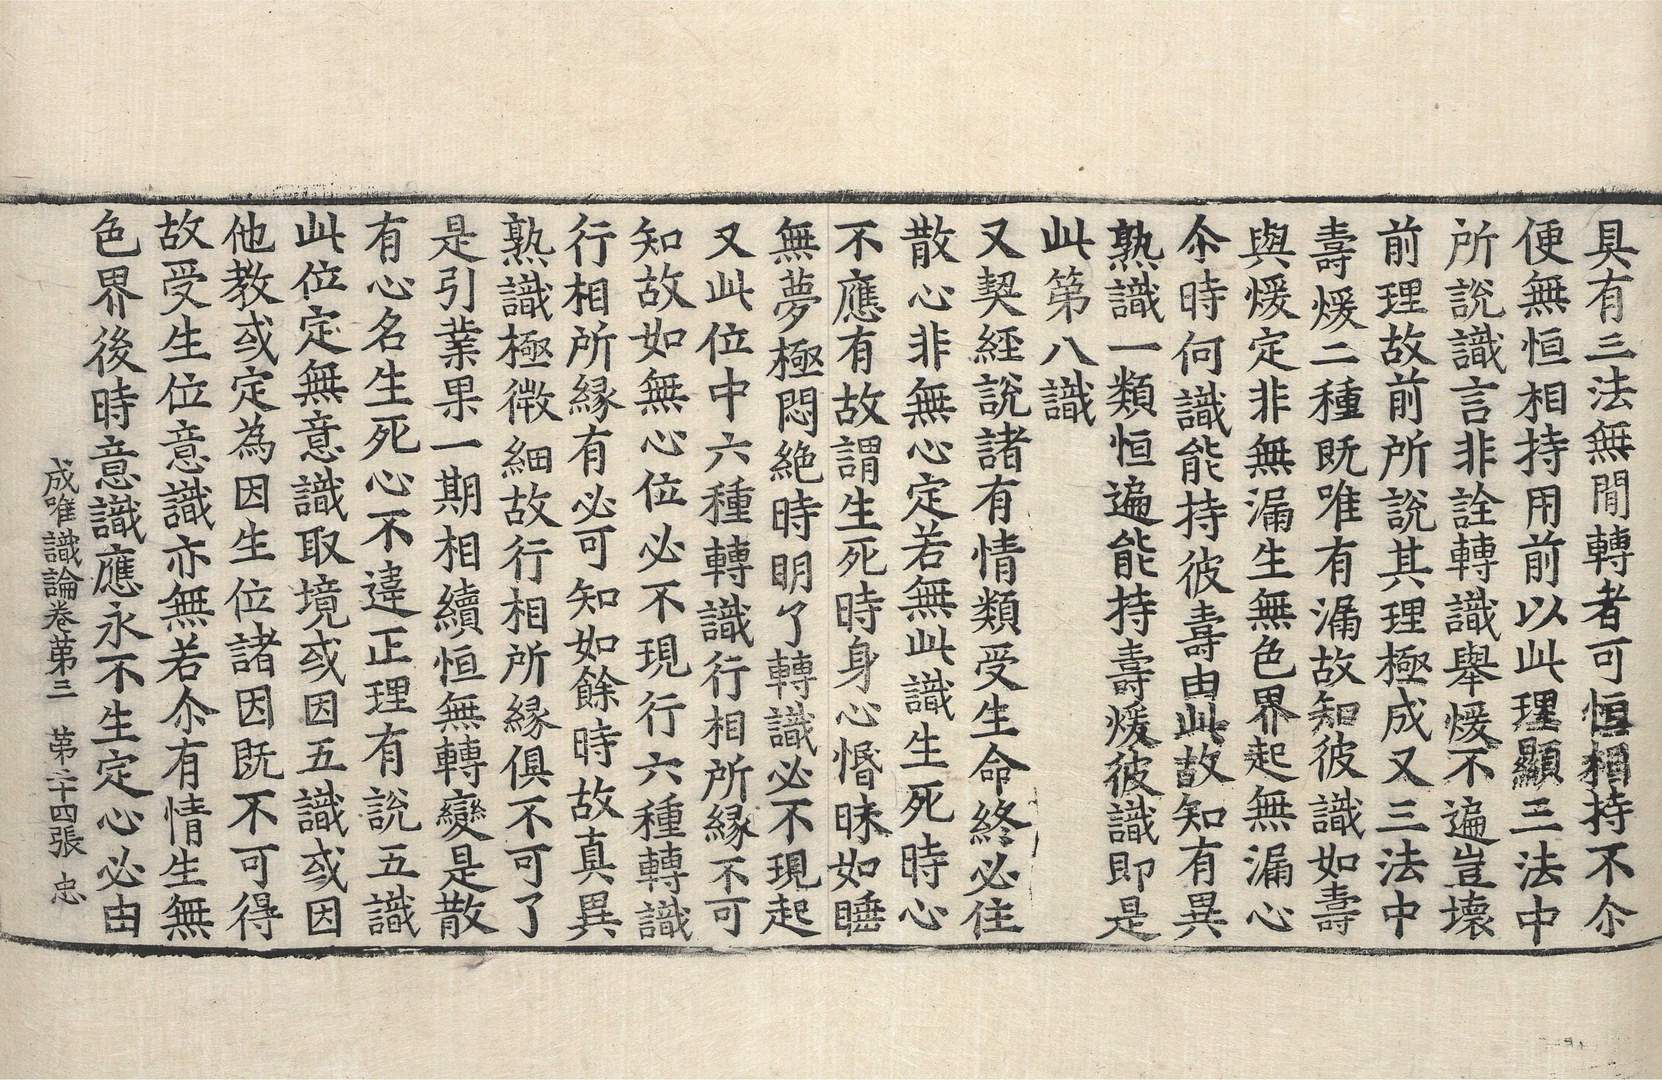 具有三法無間轉者可恒相持不尒
便無恒相持用前以此理顯三法中
所說識言非詮轉識舉煖不遍豈壞
前理故前所說其理極成又三法中
壽煖二種既唯有漏故知彼識如壽
與煖定非無漏生無色界起無漏心
尒時何識能持彼壽由此故知有異
熟識一類恒遍能持壽煖彼識即是
此第八識
又契經說諸有情類受生命終必住
散心非無心定若無此識生死時心
不應有故謂生死時身心惛昧如睡
無夢極悶絶時明了轉識必不現起
又此位中六種轉識行相所縁不可
知故如無心位必不現行六種轉識
行相所縁有必可知如餘時故真異
熟識極微細故行相所縁俱不可了
是引業果一期相續恒無轉變是散
有心名生死心不違正理有說五識
此位定無意識取境或因五識或因
他教或定為因生位諸因既不可得
故受生位意識亦無若尒有情生無
色界後時意識應永不生定心必由
成唯識論卷苐三 苐二十四張 忠